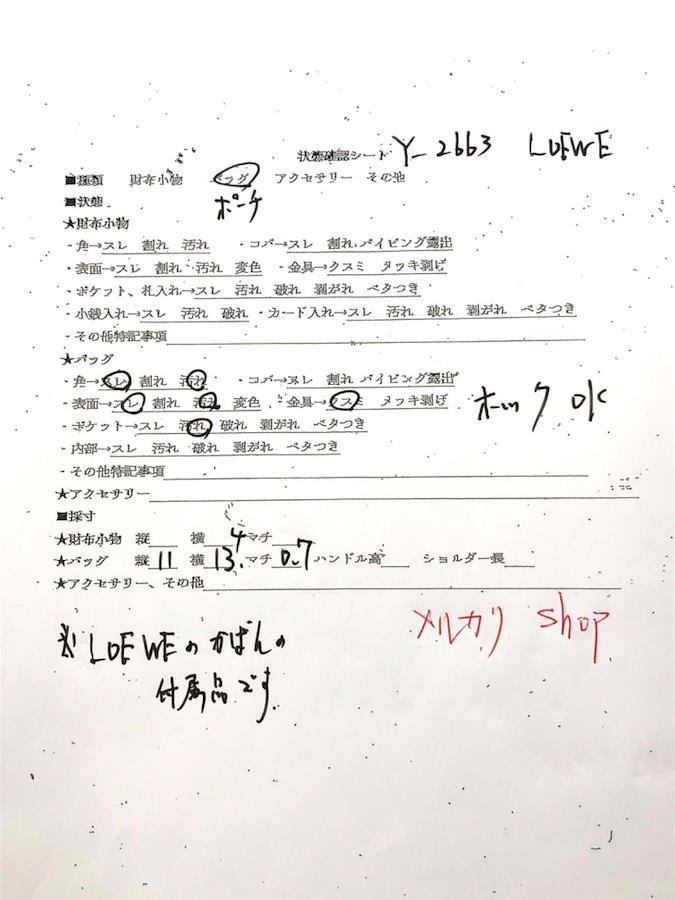 状態確認シート Y-2663 LOEWE
■種類 財布小物 バッグ アクセサリー その他
■状態 ポーチ
★財布小物
・角→スレ 割れ 汚れ ・コバ→スレ 割れ パイピング露出
・表面→スレ 割れ 汚れ 変色 ・金具→クスミ メッキ剥げ
・ポケット、札入れ→スレ 汚れ 破れ 剥がれ ベタつき
・小銭入れ→スレ 汚れ 破れ ・カード入れ→スレ 汚れ 破れ 剥がれ ベタつき
・その他特記事項
★バッグ
・角→スレ 割れ 汚れ ・コバ→スレ 割れ パイピング露出
・表面→スレ 割れ 汚れ 変色 ・金具→クスミ メッキ剥げ
ホック OK
・ポケット→スレ 汚れ 破れ 剥がれ ベタつき
・内部→スレ 汚れ 破れ 剥がれ ベタつき
・その他特記事項
★アクセサリー
■採寸
★財布小物 縦 横 マチ
★バッグ 縦 11 横 13.4 マチ 0.7 ハンドル高 ショルダー長
★アクセサリー、その他
メルカリ shop
※LOEWEのかばんの
付属品です